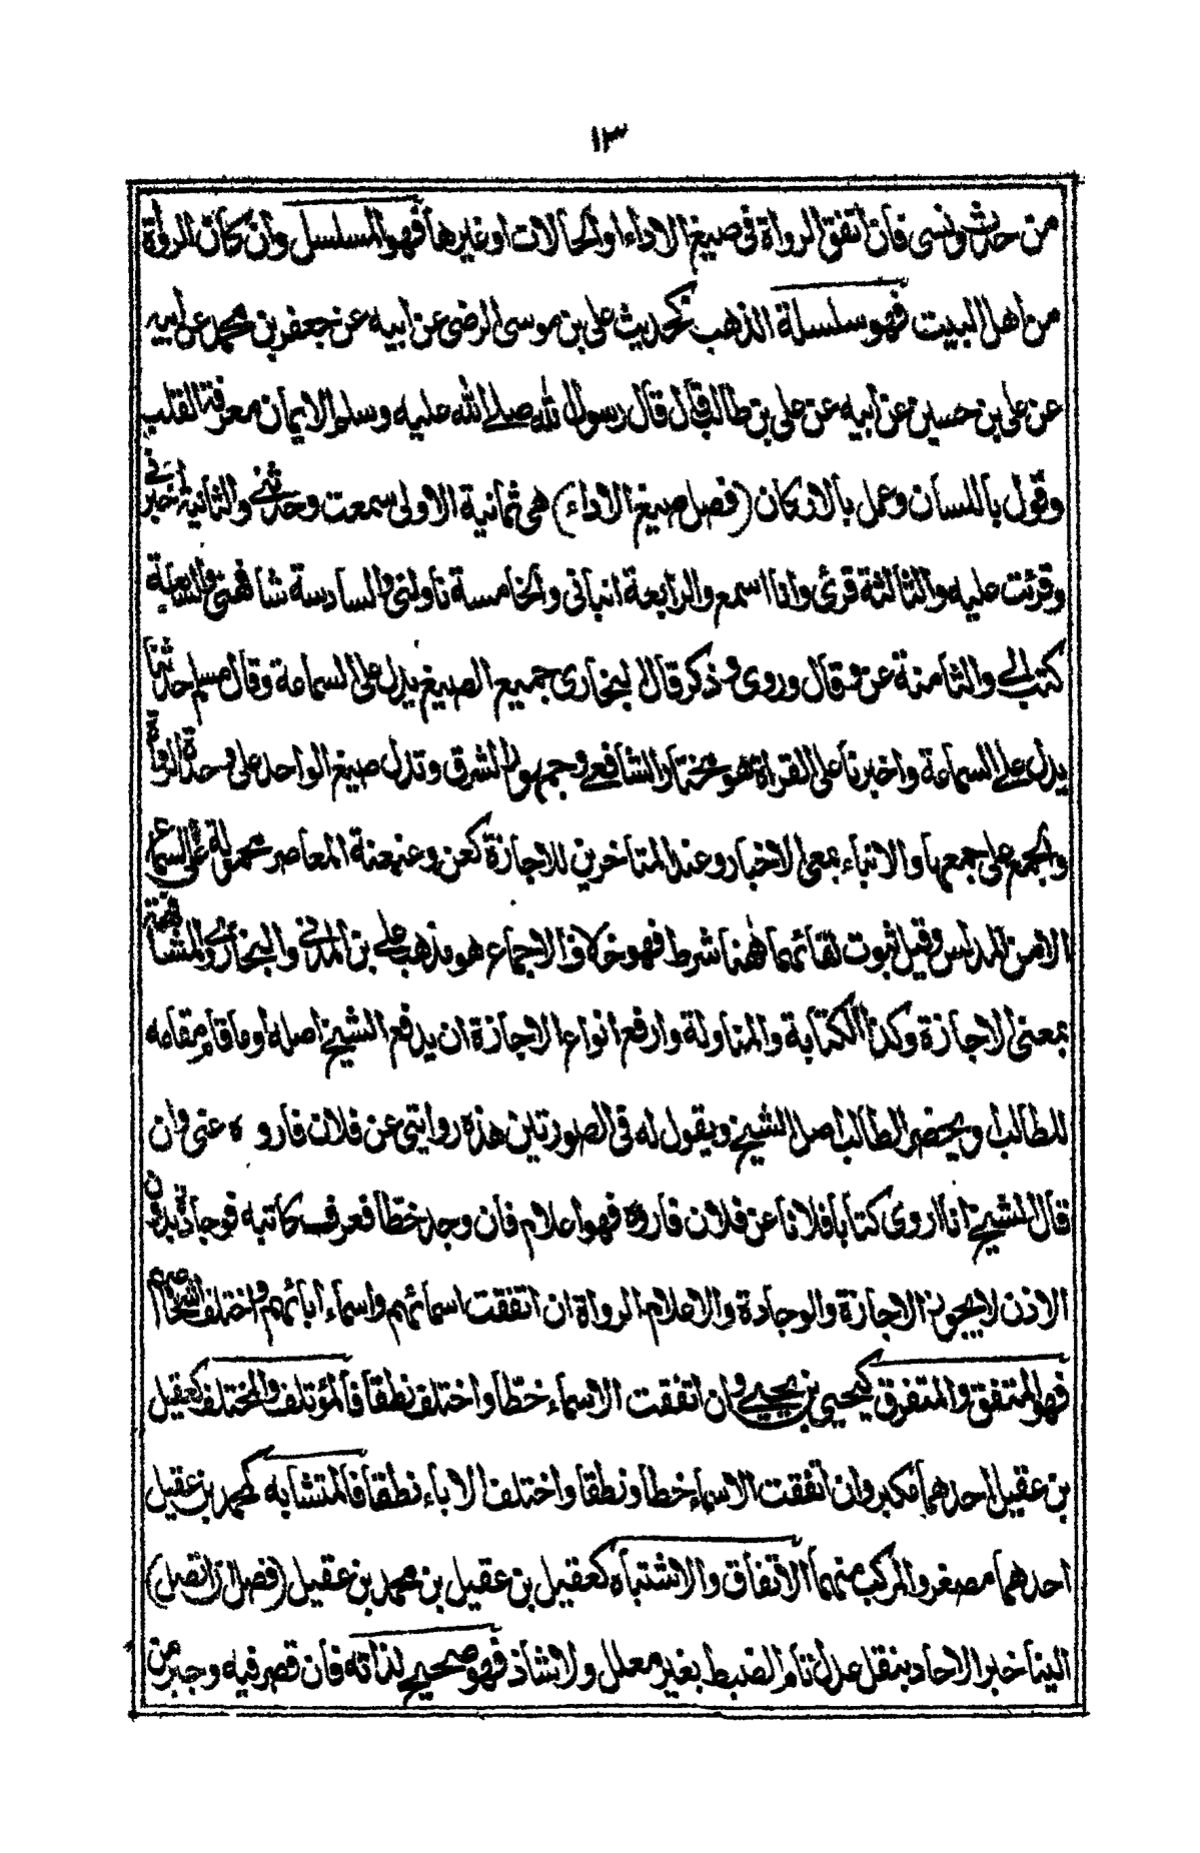 ١٣
من حدث ونسى فان اتفق الرواة فى صيغ الاداء او الحالات او غيرها فهو المسلسل وان كان الرواة
من اهل البيت فهو سلسلة الذهب كحديث على بن موسى الرضى عن ابيه عن جعفر بن محمد عن ابيه
عن على بن حسين عن ابيه عن على بن طالب قال قال رسول الله صلى الله عليه وسلم الايمان معرفة القلب
وقول باللسان وعمل بالاركان (فصل صيغ الاداء) هى ثمانية الاولى سمعت وحدثنى والثانية اخبرنى
وقرئت عليه والثالثة قرئ وانا اسمع والرابعة انبانى والخامسة ناولنى والسادسة شافهنى والسابعة
كتب الى والثامنة عن وقال وروى وذكر قال البخارى جميع الصيغ يدل على السماعة وقال مسلم حدثنا
يدل على السماعة واخبرنا على القراة هو مختار الشافعى وجمهور المشرق وتدل صيغ الواحد على وحدة الراوى
والجمع على جمعها والانباء بمعنى الاخبار وعند المتاخرين للاجازة كعن وعنعنة المعاصر محمولة على السماع
الا من المدلس وقيل ثبوت لقائهما ههنا شرط فهو خلاف الاجماع هو مذهب على بن المدانى والبخارى والمشافهة
بمعنى الاجازة وكذا الكتابة والمناولة وارفع انواع الاجازة ان يدفع الشيخ اصله او ما قام مقامه
للطالب او يحضر الطالب اصل الشيخ ويقول له فى الصورتين هذه روايتى عن فلان فاروه عنى وان
قال الشيخ انا اروى كتابا فلانا عن فلان فاروه فهو اعلام فان وجد خطا فعرف كاتبه فوجادة بدون
الاذن لا يجوز الاجازة والوجادة والاعلام الرواة ان اتفقت اسمائهم واسماء ابائهم واختلف اشخاصهم
فهو المتفق والمتفرق كيحيى بن يحيى وان اتفقت الاسماء خطا واختلف نطقا فالمؤتلف والمختلف كعقيل
بن عقيل احدهما مكبر وان اتفقت الاسماء خطا ونطقا واختلف الاباء نطقا فالمتشابه كمحمد بن عقيل
احدهما مصغر والمركب منهما الاتفاق والاشتباه كعقيل بن عقيل بن محمد بن عقيل (فصل ان اتصل)
الينا خبر الاحاد بنقل عدل تام الضبط بغير معلل ولا شاذ فهو صحيح لذاته فان قصر فيه وجبر من